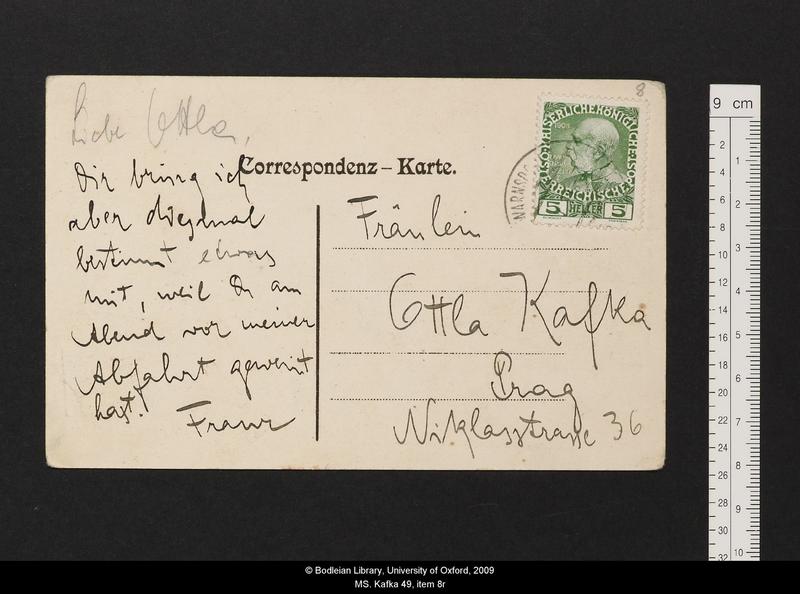 8
Liebe Ottla,
Dir bring ich
aber diesmal
bestimmt etwas
mit, weil Du am
Abend vor meiner
Abfahrt geweint
hast!
Franz
Correspondenz – Karte.
1908
KAISERLICHE KÖNIGLICHE
ÖSTERREICHISCHE POST
5 HELLER 5
WARNSDO
Fräulein
Ottla Kafka
Prag
Niklasstrasse 36
9 cm
2
4
6
8
10
12
14
16
18
20
22
24
26
28
30
32
1
2
3
4
5
6
7
8
9
10
© Bodleian Library, University of Oxford, 2009
MS. Kafka 49, item 8r